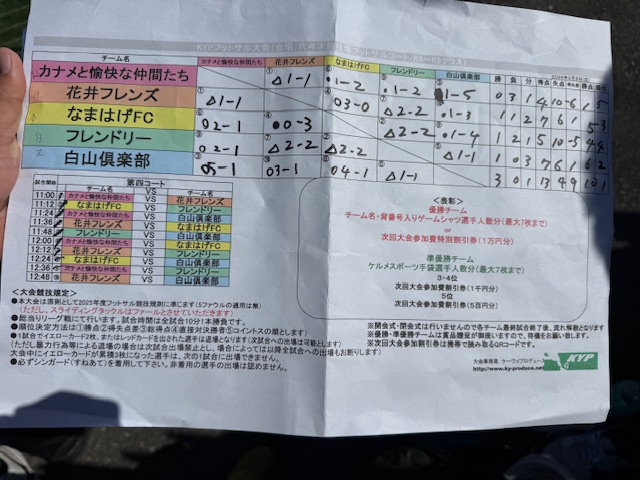 KYPフットサル大会
チーム名 カナメと愉快な仲間たち 花井フレンズ なまはげFC フレンドリー 白山倶楽部 勝 負 分 得点 失点 勝点 順位
カナメと愉快な仲間たち △1-1 ●1-2 ●1-2 ●1-5 0 3 1 4 10 -6 1 5
花井フレンズ △1-1 ○3-0 △2-2 ●1-3 1 1 2 7 6 1 5 3
なまはげFC ○2-1 ●0-3 △2-2 ●1-4
フレンドリー ○2-1 △2-2 △2-2 △1-1 1 0 3 7 6 1 6 2
白山倶楽部 ○5-1 ○3-1 ○4-1 △1-1 3 0 1 13 4 9 10 1
第四コート
試合開始 チーム名 VS チーム名
11:00 カナメと愉快な仲間たち VS 花井フレンズ
11:12 なまはげFC VS フレンドリー
11:24 カナメと愉快な仲間たち VS 白山倶楽部
11:36 花井フレンズ VS なまはげFC
11:48 フレンドリー VS 白山倶楽部
12:00 カナメと愉快な仲間たち VS なまはげFC
12:12 花井フレンズ VS 白山倶楽部
12:24 カナメと愉快な仲間たち VS フレンドリー
12:36 なまはげFC VS 白山倶楽部
12:48 花井フレンズ VS フレンドリー
<表彰>
優勝チーム
チーム名・背番号入りゲームシャツ選手人数分(最大7枚まで)
or
次回大会参加費特別割引券(1万円分)
準優勝チーム
ケルメスポーツ手袋選手人数分(最大7枚まで)
3・4位
次回大会参加費割引券(1千円分)
5位
次回大会参加費割引券(5百円分)
<大会競技規定>
●本大会は原則として2025年度フットサル競技規則に準じます(5ファウルの適用は無)
(ただし、スライディングタックルはファールとさせていただきます)
●総当りリーグ戦にて行います。試合時間は全試合10分1本勝負です。
●順位決定方法は①勝点②得失点差③総得点④直接対決勝者⑤コイントスの順とします
●1試合でイエローカード2枚、またはレッドカードを出された選手は退場となります(次試合への出場は可能とします)
(ただし暴力行為等による退場の場合は次試合出場禁止とし、場合によっては以降全試合への出場もお断りします)
大会中にイエローカードが累積3枚になった選手は、次の1試合に出場できません。
●必ずシンガード(すねあて)を着用して下さい。非着用の選手の出場は認めません。
※開会式・閉会式は行いませんので各チーム最終試合終了後、流れ解散となります
※優勝・準優勝チームには賞品贈呈が御座いますので、待機をお願い致します。
※次回大会参加割引券は携帯で読み取るQRコードです。
大会事務局 ケーワイプロデュース
http://www.ky-produce.net
KYP